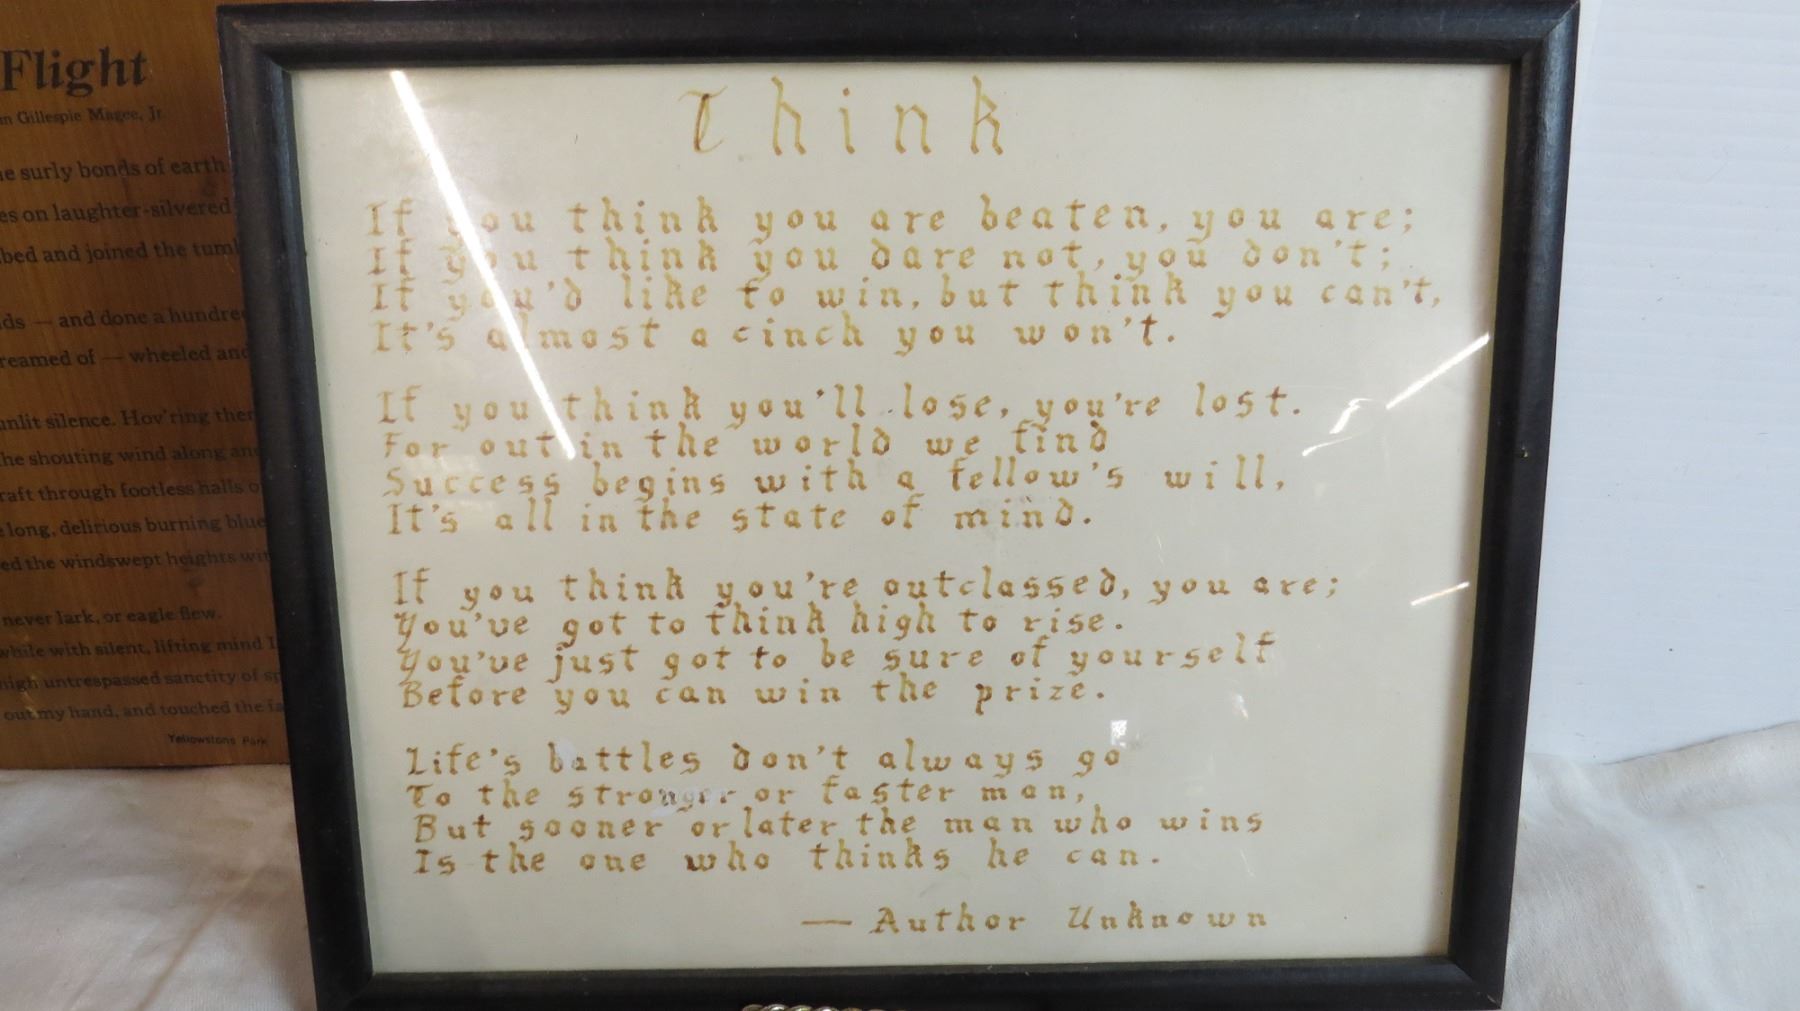 Flight
n Gillespie Magee, Jr.
surly bonds of earth
on laughter-silvered
and joined the
— and done a
of — wheeled
silence. Hov'ring
shouting wind along
through footless halls
long, delirious burning blue
the windswept heights
never lark, or eagle flew.
while with silent, lifting mind
untrespassed sanctity of
out my hand, and touched the
Yellowstone Park
Think
If you think you are beaten, you are;
If you think you dare not, you don't;
If you'd like to win, but think you can't,
It's almost a cinch you won't.
If you think you'll lose, you're lost.
For out in the world we find
Success begins with a fellow's will,
It's all in the state of mind.
If you think you're outclassed, you are;
You've got to think high to rise.
You've just got to be sure of yourself
Before you can win the prize.
Life's battles don't always go
To the stronger or faster man,
But sooner or later the man who wins
Is the one who thinks he can.
— Author Unknown